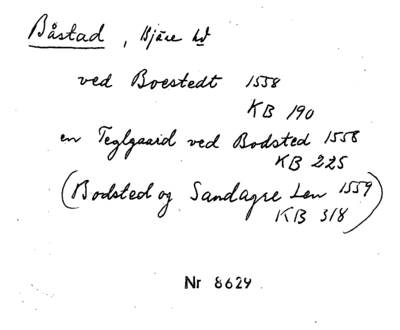 Båstad, Bjäre hd
ved Boestedt 1558
KB 190
en Teglgaard ved Bodsted 1558
KB 225
(Bodsted og Sandagre Len 1559
KB 318)
Nr 8629